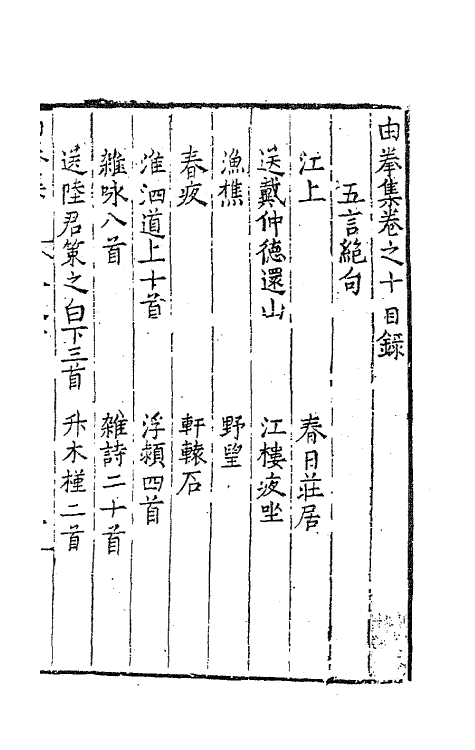 由拳集卷之十目錄
五言絕句
江上 春日莊居
送戴仲德還山 江樓夜坐
漁樵 野望
春夜 軒轅石
淮泗道上十首 浮潁四首
雜咏八首 雜詩二十首
送陸君策之白下三首 升木槿二首